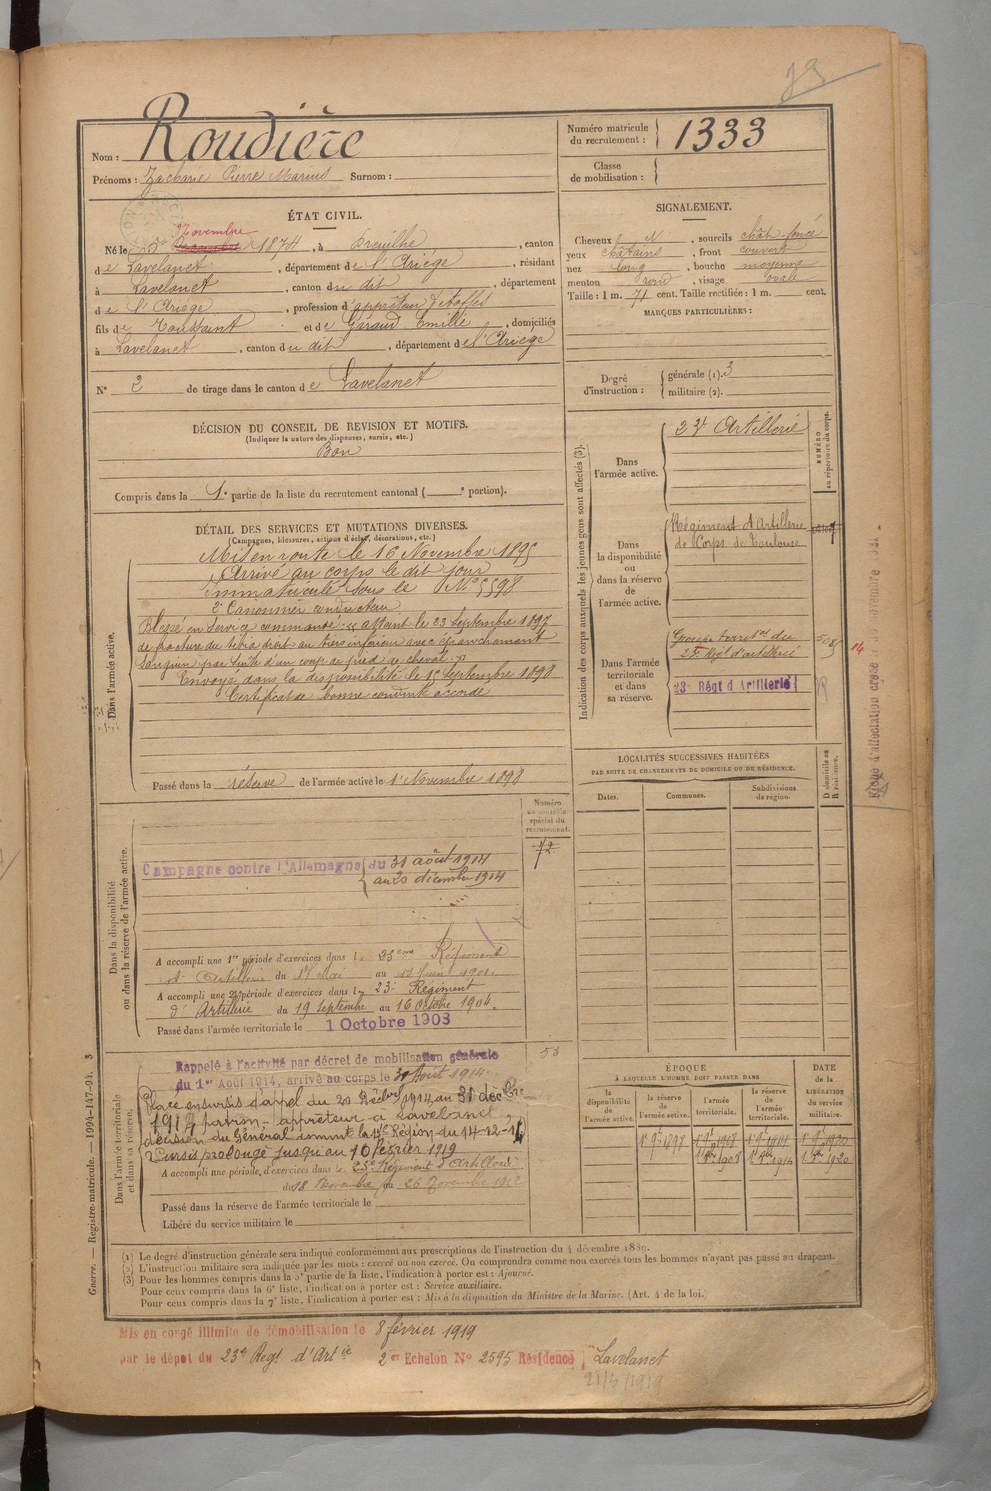 Nom : Roudière
Prénoms : Zacharie Pierre Marius Surnom :
Numéro matricule du recrutement : 1333
Classe de mobilisation :
ÉTAT CIVIL.
Novembre
Né le 1874, à Dreuilhe, canton
de Lavelanet, département de l'Ariège, résidant
à Lavelanet, canton du dit, département
de l'Ariège, profession d'apprêteur d'étoffes
fils de Toussaint et de Garaud Emilie, domiciliés
à Lavelanet, canton du dit, département de l'Ariège
N° 2 de tirage dans le canton de Lavelanet
SIGNALEMENT.
Cheveux et, sourcils chât foncé
yeux châtains, front couvert
nez long, bouche moyenne
menton rond, visage ovale
Taille : 1 m. 71 cent. Taille rectifiée : 1 m. cent.
MARQUES PARTICULIÈRES :
Degré d'instruction : générale (1). 3
militaire (2).
DÉCISION DU CONSEIL DE REVISION ET MOTIFS.
(Indiquer la nature des dispenses, sursis, etc.)
Bon
Compris dans la 1e partie de la liste du recrutement cantonal ( e portion).
DÉTAIL DES SERVICES ET MUTATIONS DIVERSES.
(Campagnes, blessures, actions d'éclat, décorations, etc.)
Dans l'armée active.
Mis en route le 16 Novembre 1895
Arrivé au corps le dit jour
Immatriculé sous le N° 5598
2e Canonnier conducteur
Blessé en service commandé : le 23 septembre 1897
de fracture du tibia droit au tiers inférieur avec épanchement
sanguin par suite d'un coup de pied de cheval."
Envoyé dans la disponibilité le 15 septembre 1898
Certificat de bonne conduite accordé
Passé dans la réserve de l'armée active le 1er Novembre 1898
Indication des corps auxquels les jeunes gens sont affectés (3).
NUMÉRO au répertoire du corps.
Dans l'armée active.
23e Artillerie
Dans la disponibilité ou dans la réserve de l'armée active.
Régiment d'Artillerie
de Corps de Toulouse
Dans l'armée territoriale et dans sa réserve.
Groupe territal du
23e Régt d'artillerie
23e Régt d'Artillerie
14
Fiche d'affectation créée le novembre
LOCALITÉS SUCCESSIVES HABITÉES
PAR SUITE DE CHANGEMENTS DE DOMICILE OU DE RÉSIDENCE.
Dates. Communes. Subdivisions de région. D domicile ou R résidence.
Numéro au contrôle spécial du recrutement.
72
Dans la disponibilité ou dans la réserve de l'armée active.
Campagne contre l'Allemagne du 31 août 1914
au 20 décembre 1914
A accompli une 1re période d'exercices dans le 23ème Régiment
d'Artillerie du Mai au Juin 1901.
A accompli une 2e période d'exercices dans le 23e Régiment
d'Artillerie du 19 Septembre au 16 Octobre 1904.
Passé dans l'armée territoriale le 1 Octobre 1908
53
Dans l'armée territoriale et dans sa réserve.
Rappelé à l'activité par décret de mobilisation générale
du 1er Août 1914, arrivé au corps le 31 Août 1914
Placé en sursis d'appel du 20 Décbre 1914 au 31 décbre
1917, patron-apprêteur à Lavelanet,
décision du Général commt la Région du 14-12-1
Sursis prolongé jusqu'au 10 février 1919
A accompli une période d'exercices dans le 23e Régiment d'Artillerie
du 18 Novembre au 26 Novembre 1912
Passé dans la réserve de l'armée territoriale le
Libéré du service militaire le
ÉPOQUE
À LAQUELLE L'HOMME DOIT PASSER DANS
la disponibilité de l'armée active. la réserve de l'armée active. l'armée territoriale. la réserve de l'armée territoriale.
DATE de la LIBÉRATION du service militaire.
(1) Le degré d'instruction générale sera indiqué conformément aux prescriptions de l'instruction du 4 décembre 1889.
(2) L'instruction militaire sera indiquée par les mots : exercé ou non exercé. On comprendra comme non exercés tous les hommes n'ayant pas passé au drapeau.
(3) Pour les hommes compris dans la 5e partie de la liste, l'indication à porter est : Ajourné.
Pour ceux compris dans la 6e liste, l'indication à porter est : Service auxiliaire.
Pour ceux compris dans la 7e liste, l'indication à porter est : Mis à la disposition du Ministre de la Marine. (Art. 4 de la loi.)
Guerre. — Registre-matricule. — 1094-147-94. 3
Mis en congé illimité de démobilisation le 8 février 1919
par le dépôt du 23e Regt d'Artie 2er Echelon N° 2595 Résidence Lavelanet
21/5/1919